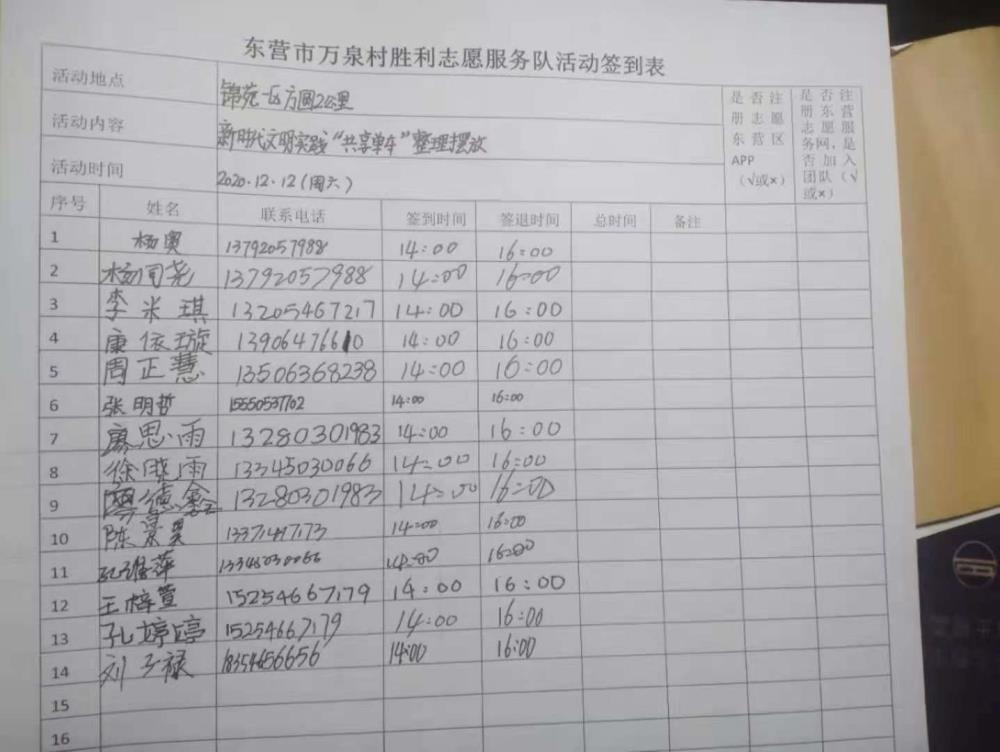 东营市万泉村胜利志愿服务队活动签到表
活动地点 锦苑一区方圆2公里
活动内容 新时代文明实践“共享单车”整理摆放
活动时间 2020.12.12(周六)
是否注册志愿东营区APP(√或×)
是否注册东营志愿服务网,是否加入团队(√或×)
序号 姓名 联系电话 签到时间 签退时间 总时间 备注
1 杨奥 13792057988 14:00 16:00
2 杨同尧 13792057988 14:00 16:00
3 李米琪 13205467217 14:00 16:00
4 康依璇 13906476610 14:00 16:00
5 周正慧 13506368238 14:00 16:00
6 张明哲 15550537702 14:00 16:00
7 廖思雨 13280301983 14:00 16:00
8 徐晓雨 13345030066 14:00 16:00
9 廖德鑫 13280301983 14:00 16:00
10 陈景昊 14:00 16:00
11 14:00 16:00
12 王梓萱 15254667179 14:00 16:00
13 孔婷婷 15254667179 14:00 16:00
14 刘子禄 18354656656 14:00 16:00
15
16